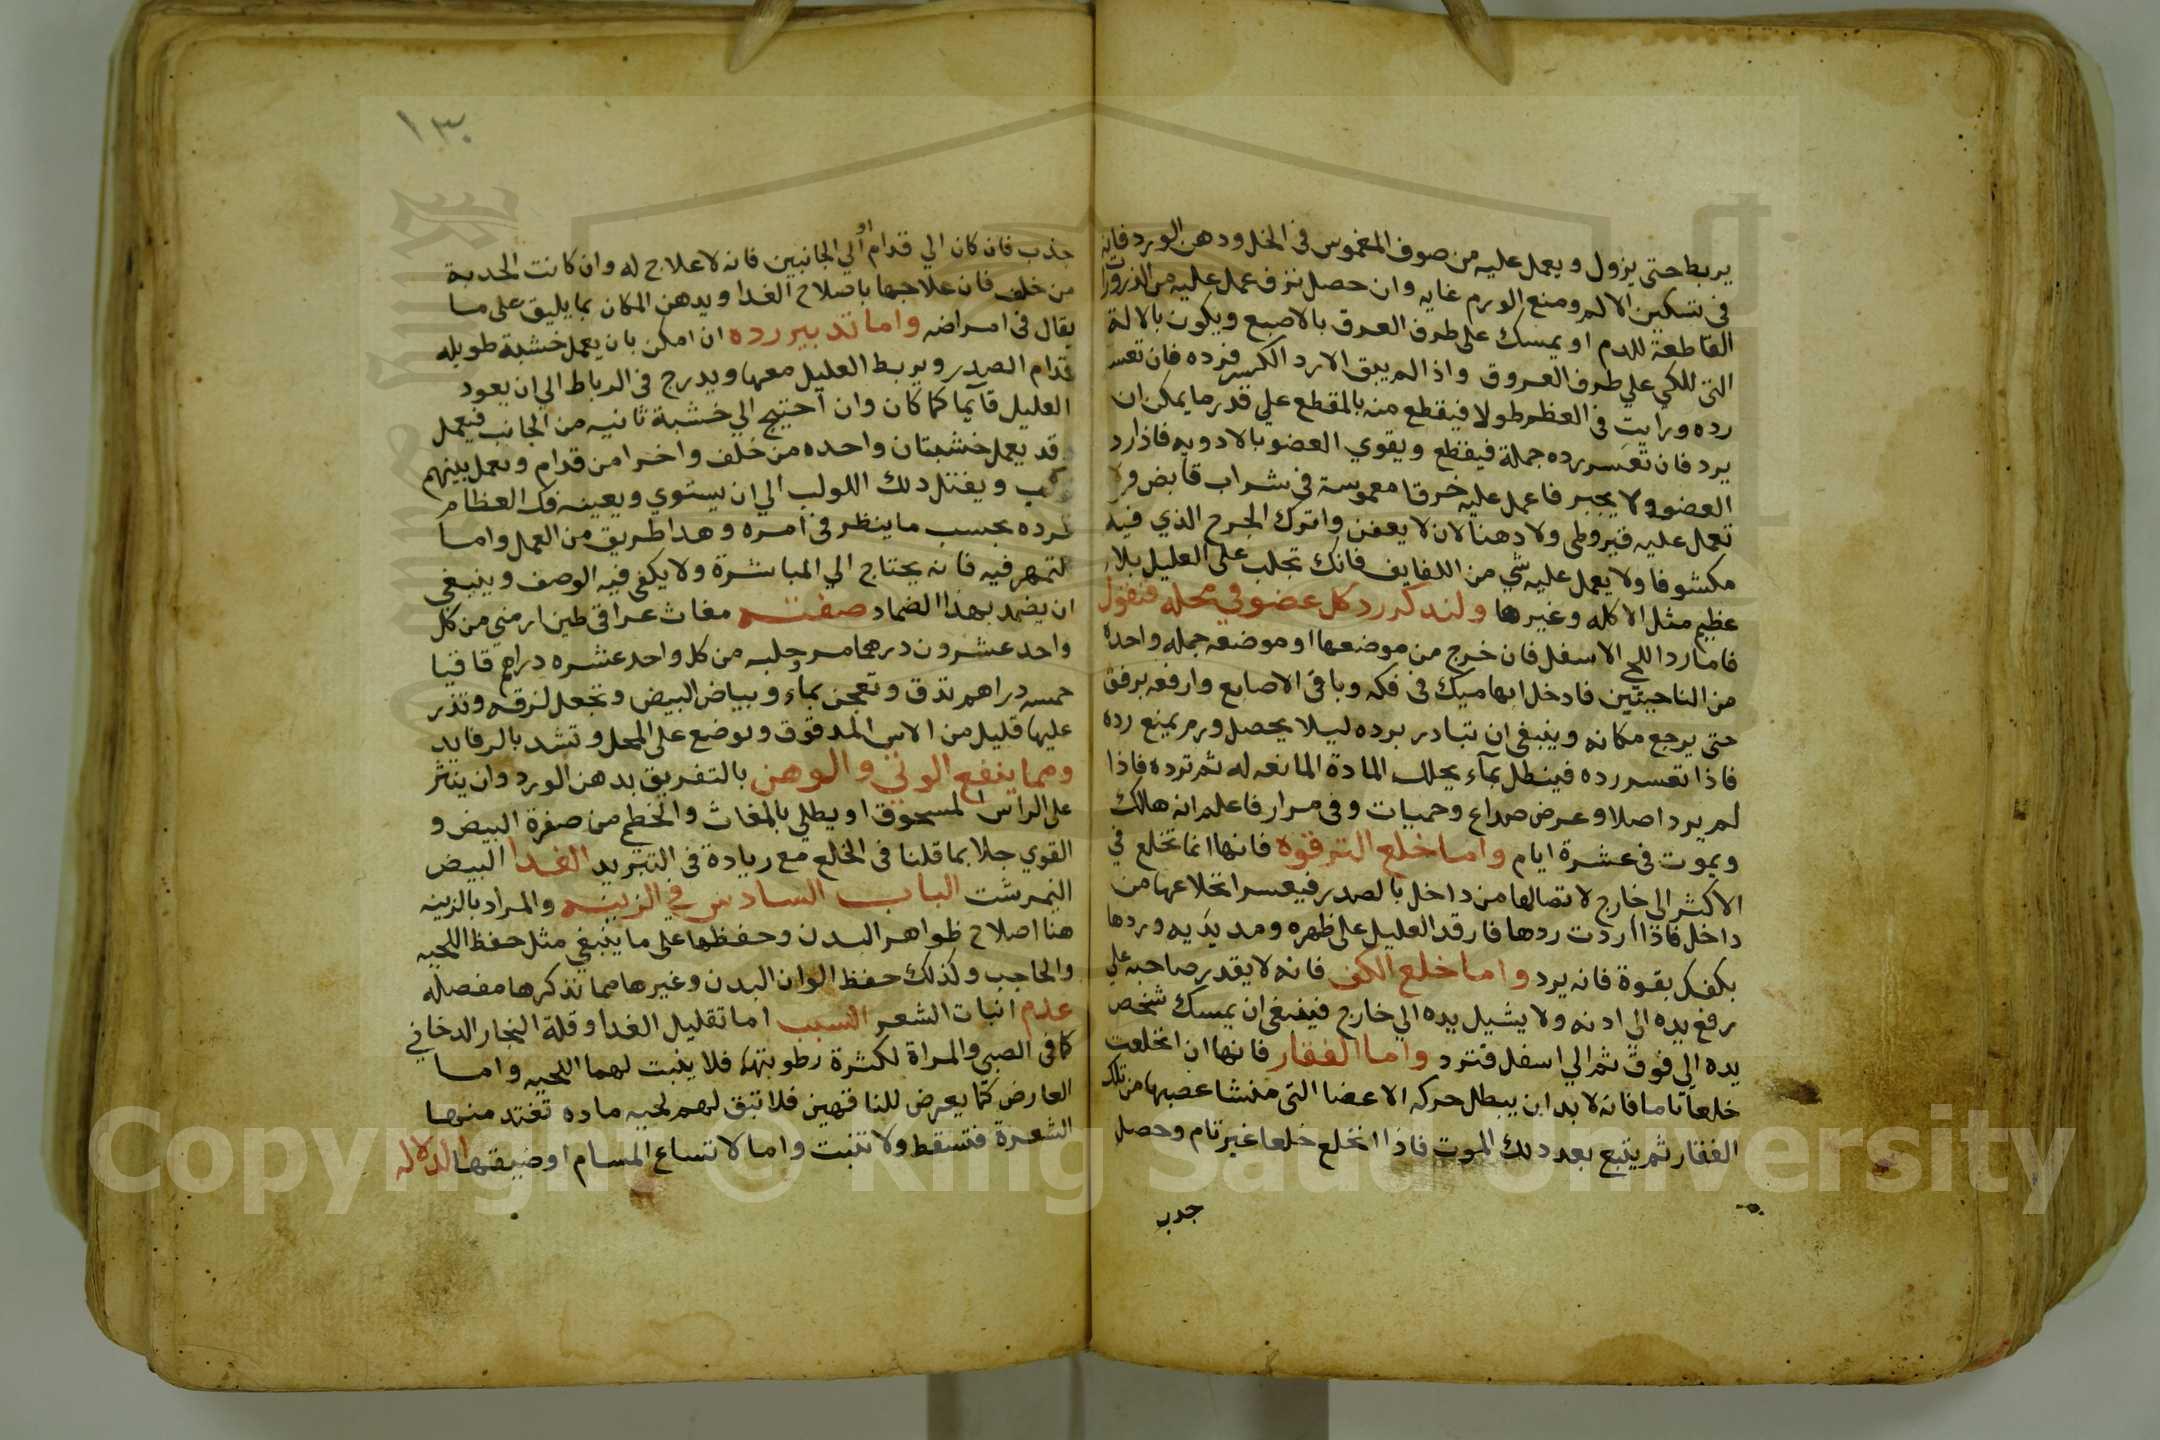 يربط حتى يزول ويعمل عليه من صوف المغموس في الخل ودهن الورد فانه
في تسكين الالم ومنع الورم غايه وان حصل نزف عمل عليه من الذرورات
القاطعة للدم او يمسك على طرف العرق بالاصبع ويكون بالالة
التي للكي علي طرف العروق واذا لم يبق الا رد الكسر فرده فان تعسر
رده ورايت في العظم طولا فيقطع منه بالمقطع علي قدر ما يمكن ان
يرد فان تعسر رده جملة فيقطع ويقوي العضو بالادويه فاذا رد
العضو ولا يجبر فاعمل عليه خرقا مغموسة في شراب قابض ولا
تعمل عليه قيروطى ولا دهنا لان لا يعفن واترك الجرح الذي فيه
مكشوفا ولا يعمل عليه شي من اللفايف فانك تجلب على العليل بلاء
عظيم مثل الاكله وغيرها ولنذكر رد كل عضو في محله فنقول
فاما رد اللحي الاسفل فان خرج من موضعها او موضعه جمله واحدة
من الناحيتين فادخل ابهاميك في فكه وباقي الاصابع وارفعه برفق
حتى يرجع مكانه وينبغي ان تبادر برده ليلا يحصل ورم يمنع رده
فاذا تعسر رده فينطل بمآء يحلل المادة المانعه له ثم ترده فاذا
لم يرد اصلا وعرض صداع وحميات وفى مرار فاعلم انه هالك
ويموت في عشرة ايام واما خلع الترقوة فانها انما تخلع في
الاكثر الي خارج لاتصالها من داخل بالصدر فيعسر انخلاعها من
داخل فاذا اردت ردها فارقد العليل على ظهره ومد يديه وردها
بكفك بقوة فانه يرد واما خلع الكف فانه لا يقدر صاحبه علي
رفع يده الي اذنه ولا يشيل يده الي خارج فينبغي ان يمسك شخص
يده الي فوق ثم الي اسفل فترد واما الفقار فانها ان انخلعت
خلعا تاما فانه لا بد ان يبطل حركه الاعضا التي منشا عصبها من تلك
الفقار ثم يتبع بعد دلك الموت فاذا انخلع خلعا غير تام وحصل
جدب
١٣٠
جذب فان كان الي قدام او الي الجانبين فانه لا علاج له وان كانت الحدبة
من خلف فان علاجها باصلاح الغدا ويدهن المكان بما يليق على ما
يقال في امراضه واما تدبير رده ان امكن بان يعمل خشبة طويله
قدام الصدر ويربط العليل معها ويدرج في الرباط الي ان يعود
العليل قآيما كما كان وان احتيج الي خشبة ثانيه من الجانب فيعمل
وقد يعمل خشبتان واحده من خلف واخرا من قدام ويعمل بينهم
ويفتل دلك اللولب الي ان يستوي ويعينه فك العظام
لرده بحسب ما ينظر في امره وهدا طريق من العمل واما
التمهر فيه فانه يحتاج الي المباشرة ولا يكفي فيه الوصف وينبغي
ان يضمد بهذا الضماد صفته مغاث عراقي طين ارمني من كل
واحد عشرون درهما مر وحلبه من كل واحد عشره دراهم قاقيا
خمسه دراهم تدق وتعجن بماء وبياض البيض وتجعل لزقه وتذر
عليها قليل من الاس المدقوق وتوضع على المحل وتشد بالرفايد
ومما ينفع الوثي والوهن بالتغريق بدهن الورد وان ينثر
على الراس المسحوق او يطلي بالمغاث والخطمي من صفرة البيض و
القوي جلا بما قلنا في الخلع مع زيادة في التبريد الغدا البيض
النيمرشت الباب السادس في الزينه والمراد بالزينه
هنا اصلاح ظواهر البدن وحفظها على ما ينبغي مثل حفظ اللحيه
والحاجب وكذلك حفظ الوان البدن وغيرها مما نذكرها مفصله
عدم انبات الشعر السبب اما تقليل الغدا وقلة البخار الدخاني
كما في الصبي والمراة لكثرة رطوبتها فلا ينبت لهما اللحيه واما
العارض كما يعرض للناقهين فلا تبق لهم لحيه ماده تغتد منها
الشعرة فتسقط ولا تنبت واما لاتساع المسام او ضيقها الدلاله
Copyright © King Saud University